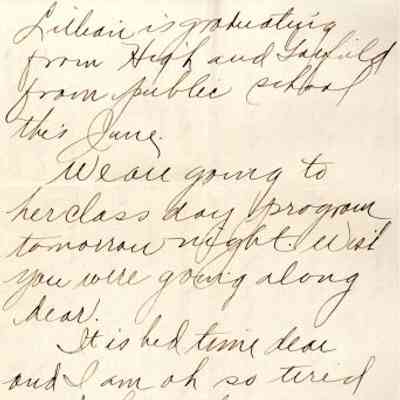 Lillian is graduating
from High and Garfield
from public school
this June.
We are going to
her class day program
tomorrow night. Wish
you were going along
dear.
It is bed time dear
and I am oh so tired